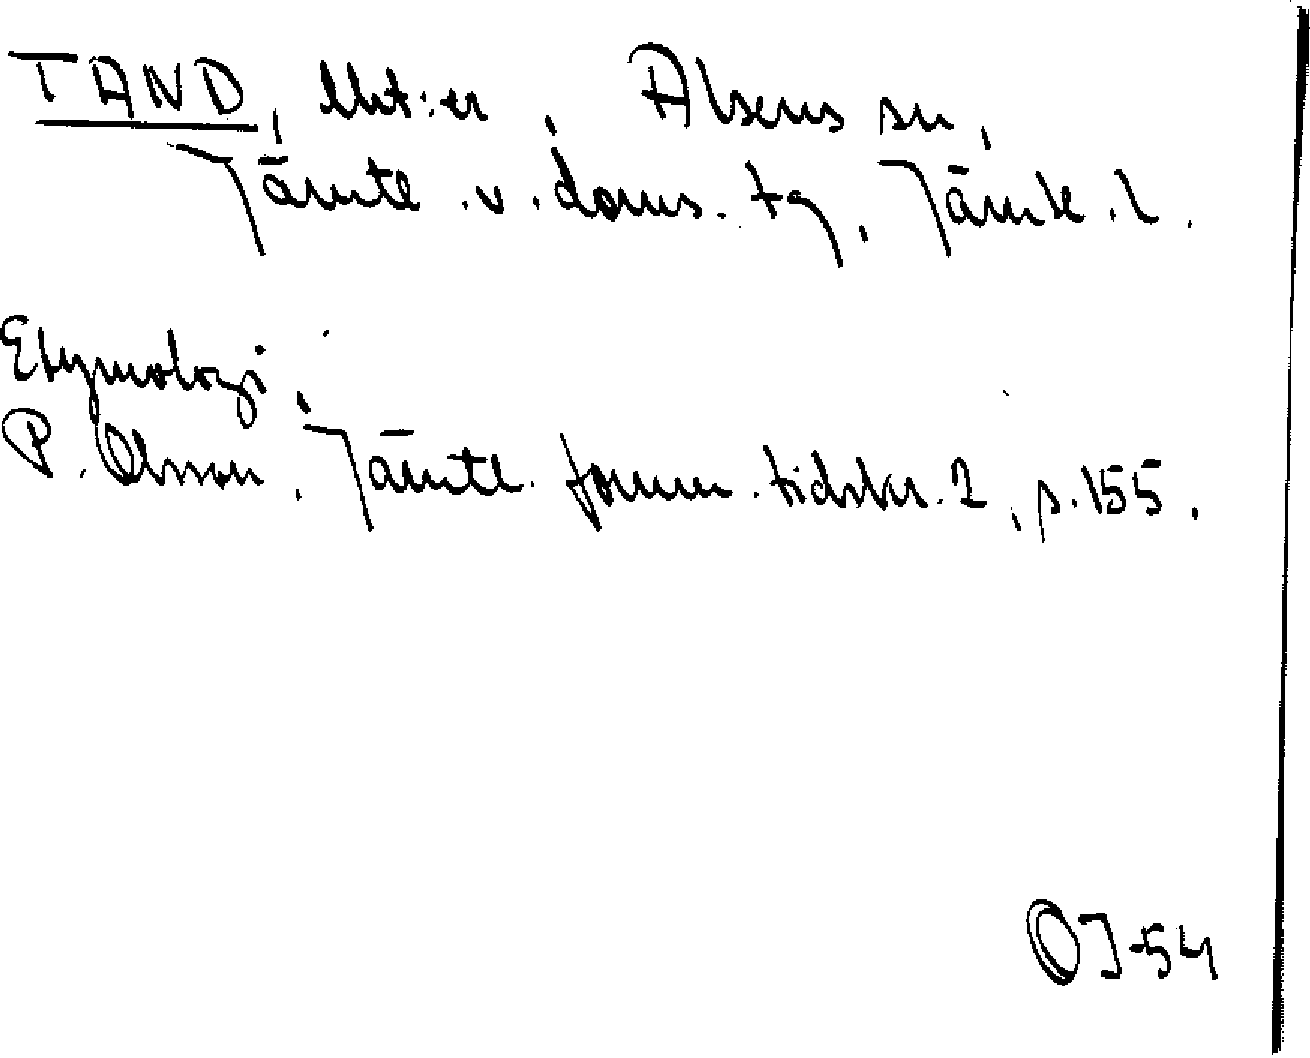 TAND, Uht:er, Alsens sn,
Jämtl. v. doms. tg, Jämtl. l.
Etymologi,
P. Olsson, Jämtl. fornm. tidskr. 2, s. 155.
OJ-54